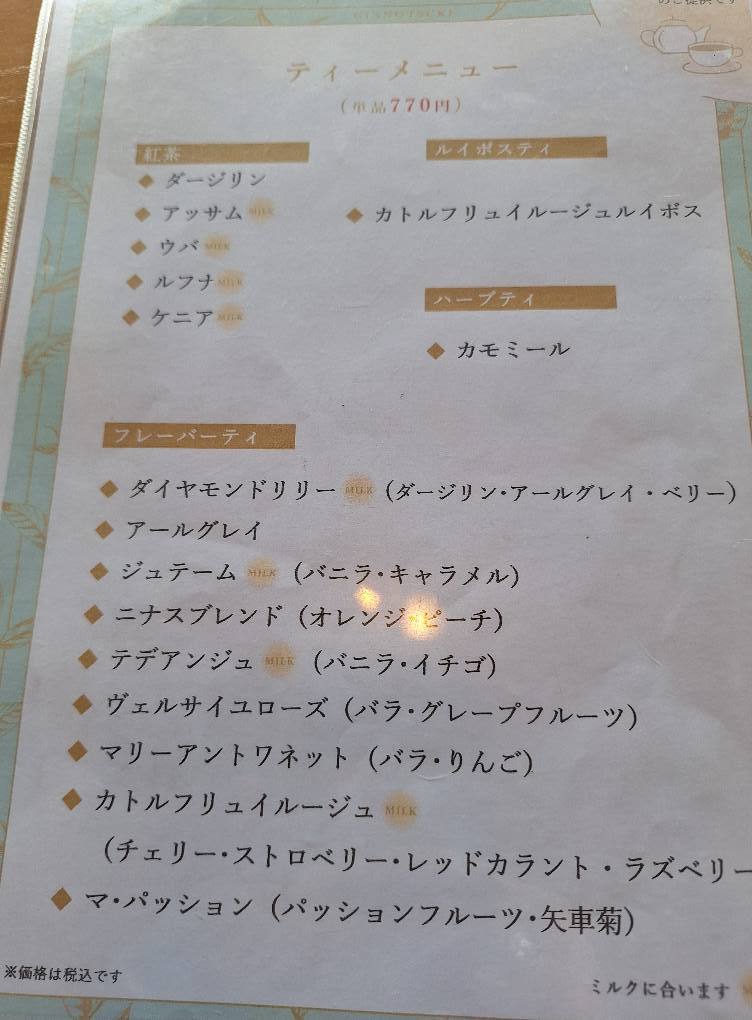 のご提供です
ティーメニュー
（単品770円）
紅茶
◆ ダージリン
◆ アッサム MILK
◆ ウバ MILK
◆ ルフナ MILK
◆ ケニア MILK
ルイボスティ
◆ カトルフリュイルージュルイボス
ハーブティ
◆ カモミール
フレーバーティ
◆ ダイヤモンドリリー MILK （ダージリン・アールグレイ・ベリー）
◆ アールグレイ
◆ ジュテーム MILK （バニラ・キャラメル）
◆ ニナスブレンド（オレンジ・ピーチ）
◆ テデアンジュ MILK （バニラ・イチゴ）
◆ ヴェルサイユローズ（バラ・グレープフルーツ）
◆ マリーアントワネット（バラ・りんご）
◆ カトルフリュイルージュ MILK
（チェリー・ストロベリー・レッドカラント・ラズベリー
◆ マ・パッション（パッションフルーツ・矢車菊）
※価格は税込です
ミルクに合います